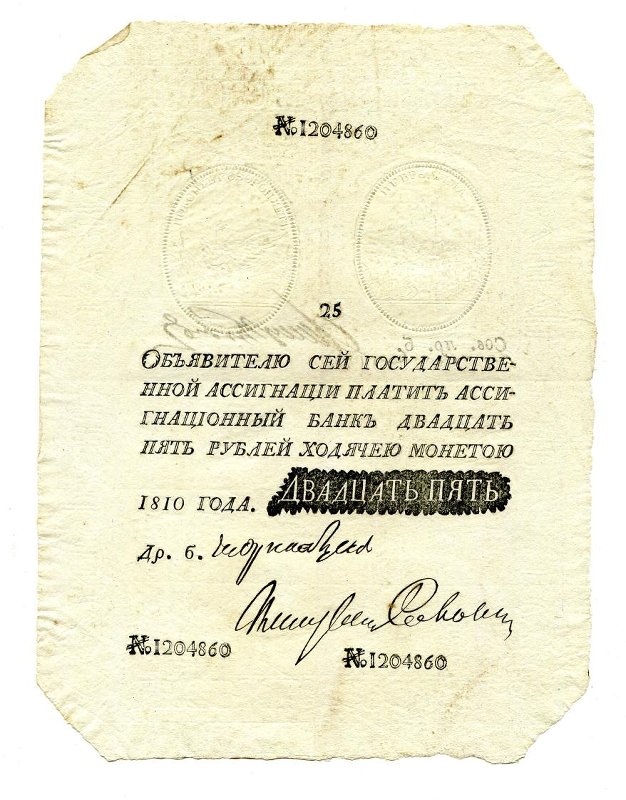 № 1204860
25
Объявителю сей государстве-
нной ассигнаціи платитъ асси-
гнаціонный банкъ двадцать
пять рублей ходячею монетою
1810 года. ДВАДЦАТЬ ПЯТЬ
Др. б.
№ 1204860 № 1204860